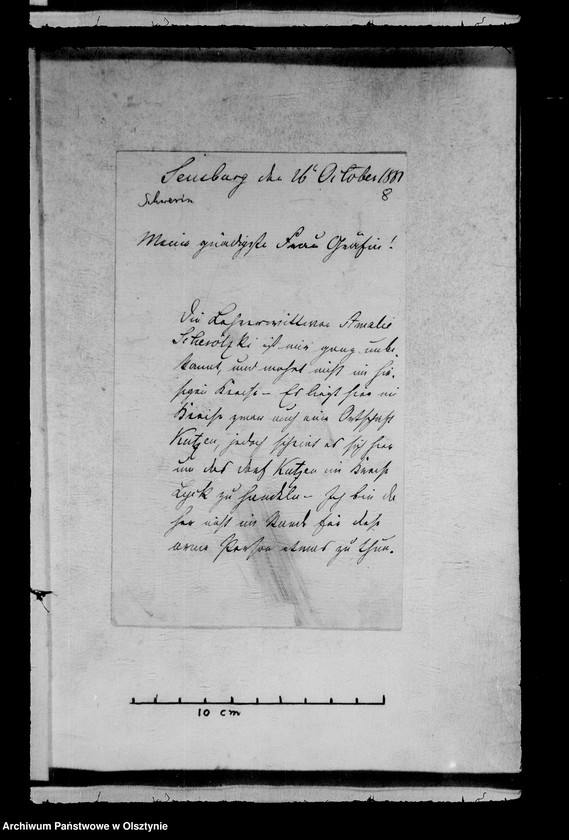 Sensburg den 26t October 1881
8
Schwerin
Meine gnädigste Frau Gräfin!
Die Lehrerwittwe Amalie
ist mir ganz unbe-
kannt, und wohnt nicht im hie-
sigen Kreise – Es liegt hier im
Kreise zwar auch eine Ortschaft
Kutzen, jedoch scheint es sich hier
um das Dorf Kutzen im Kreise
Lyck zu handeln – Ich bin da
her nicht im Stande für diese
arme Person etwas zu thun.
10 cm
Archiwum Państwowe w Olsztynie